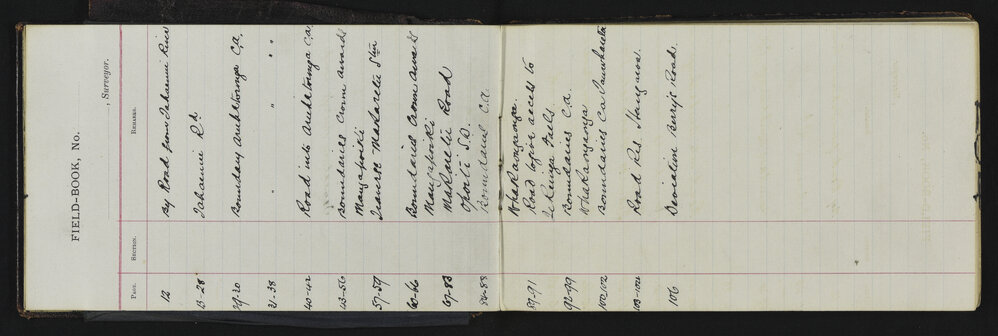 FIELD-BOOK, No.
, Surveyor.
Page. Section. Remarks.
12 By Road from Tahaenui River
13-28 Tahaenui Rd
29-30 Boundary C.A.
31-38 " " "
40-42 Road into C.A.
43-56 Boundaries Crown Awards
Mangapoike
57-59 Traverse Makaretu Stm
60-66 Boundaries Crown Award
Mangapoike
67-83 Makaretu Road
Opoiti S.D.
84-88 Boundaries C.A.
Whakangaongao
89-91 Road access to
Te Reinga Falls
92-99 Boundaries C.A.
Whakangaongao
100-102 Boundaries C.A.
103-104 Road Res. Hangaroa
106 Deviation Road.